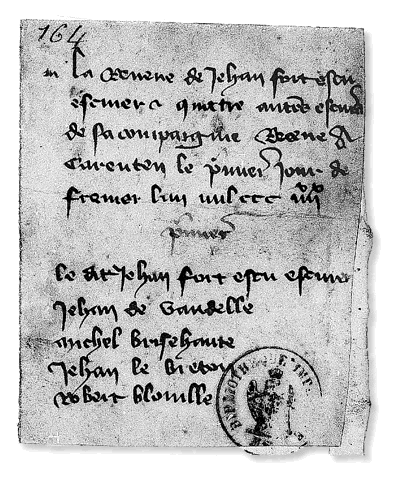 164
La Reveue de Jehan fort escu
escuier & quattre autres escuiers
de sa compaignie Reveue A
Carenten le premier jour de
fevrier lan mil ccc iiii
premier
le dit Jehan fort escu escuier
Jehan de Vaudelle
michel brisehante
Jehan le breton
robert blouille
BIBLIOTHEQUE IMP